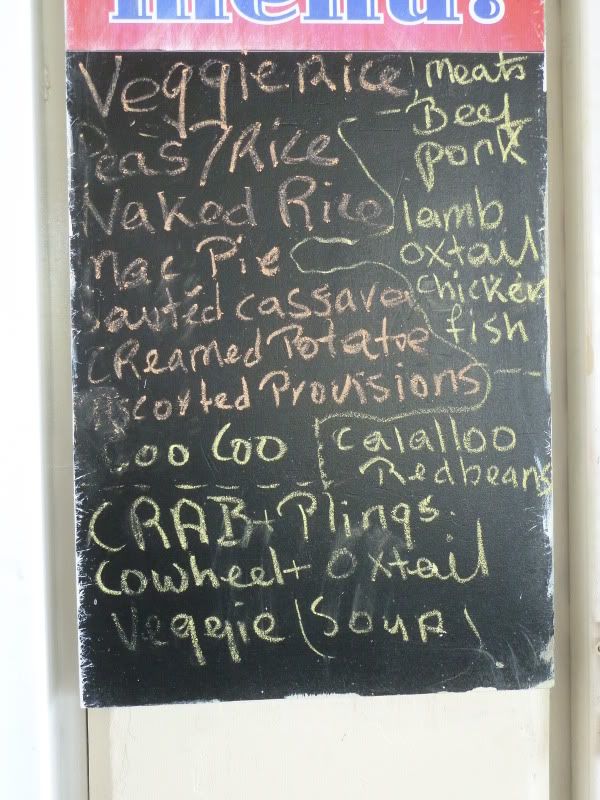 menu:
Veggie Rice
Peas/Rice
Naked Rice
Mac Pie
Sautéd cassava
CReamed Potatoe
Assorted Provisions
Coo Coo
Meats
Beef
pork
lamb
oxtail
chicken
fish
Calalloo
Redbeans
CRAB + Plings.
Cowheel + Oxtail
Veggie (Soup)